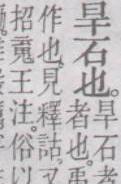 旱石也。
旱石者
者也。禹
作也。見釋詁。又
招䰟王注。俗以